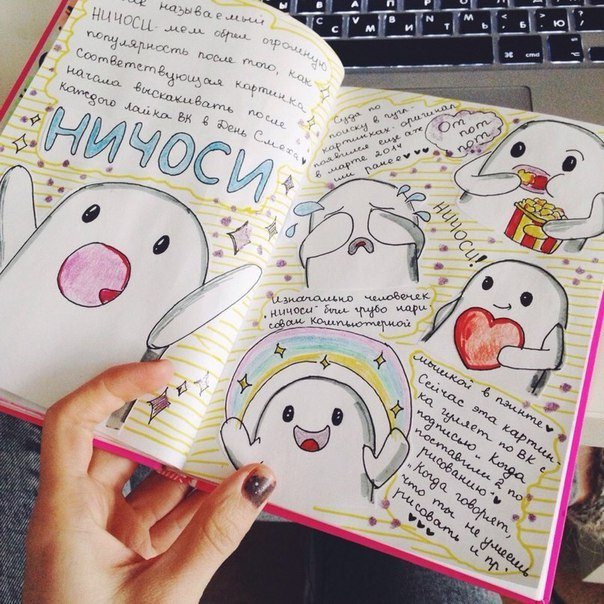 Так называемый
НИЧОСИ - мем обрел огромную
популярность после того, как
соответствующая картинка
начала выскакивать после
каждого лайка ВК в День Смеха
НИЧОСИ
Судя по
поиску в гугл-
картинках, оригинал
появился еще аж
в марте 2014
или ранее
Ом
ном
ном
НИЧОСИ!
Изначально человечек
"Ничоси" был грубо нари-
сован компьютерной
мышкой в пэинте
Сейчас эта картин-
ка гуляет по ВК с
подписью "Когда
поставили 2 по
рисованию"
"Когда говорят,
что ты не умеешь
рисовать и пр.